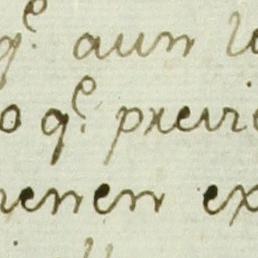 q.e aun lo
o q.e preci
enen ex